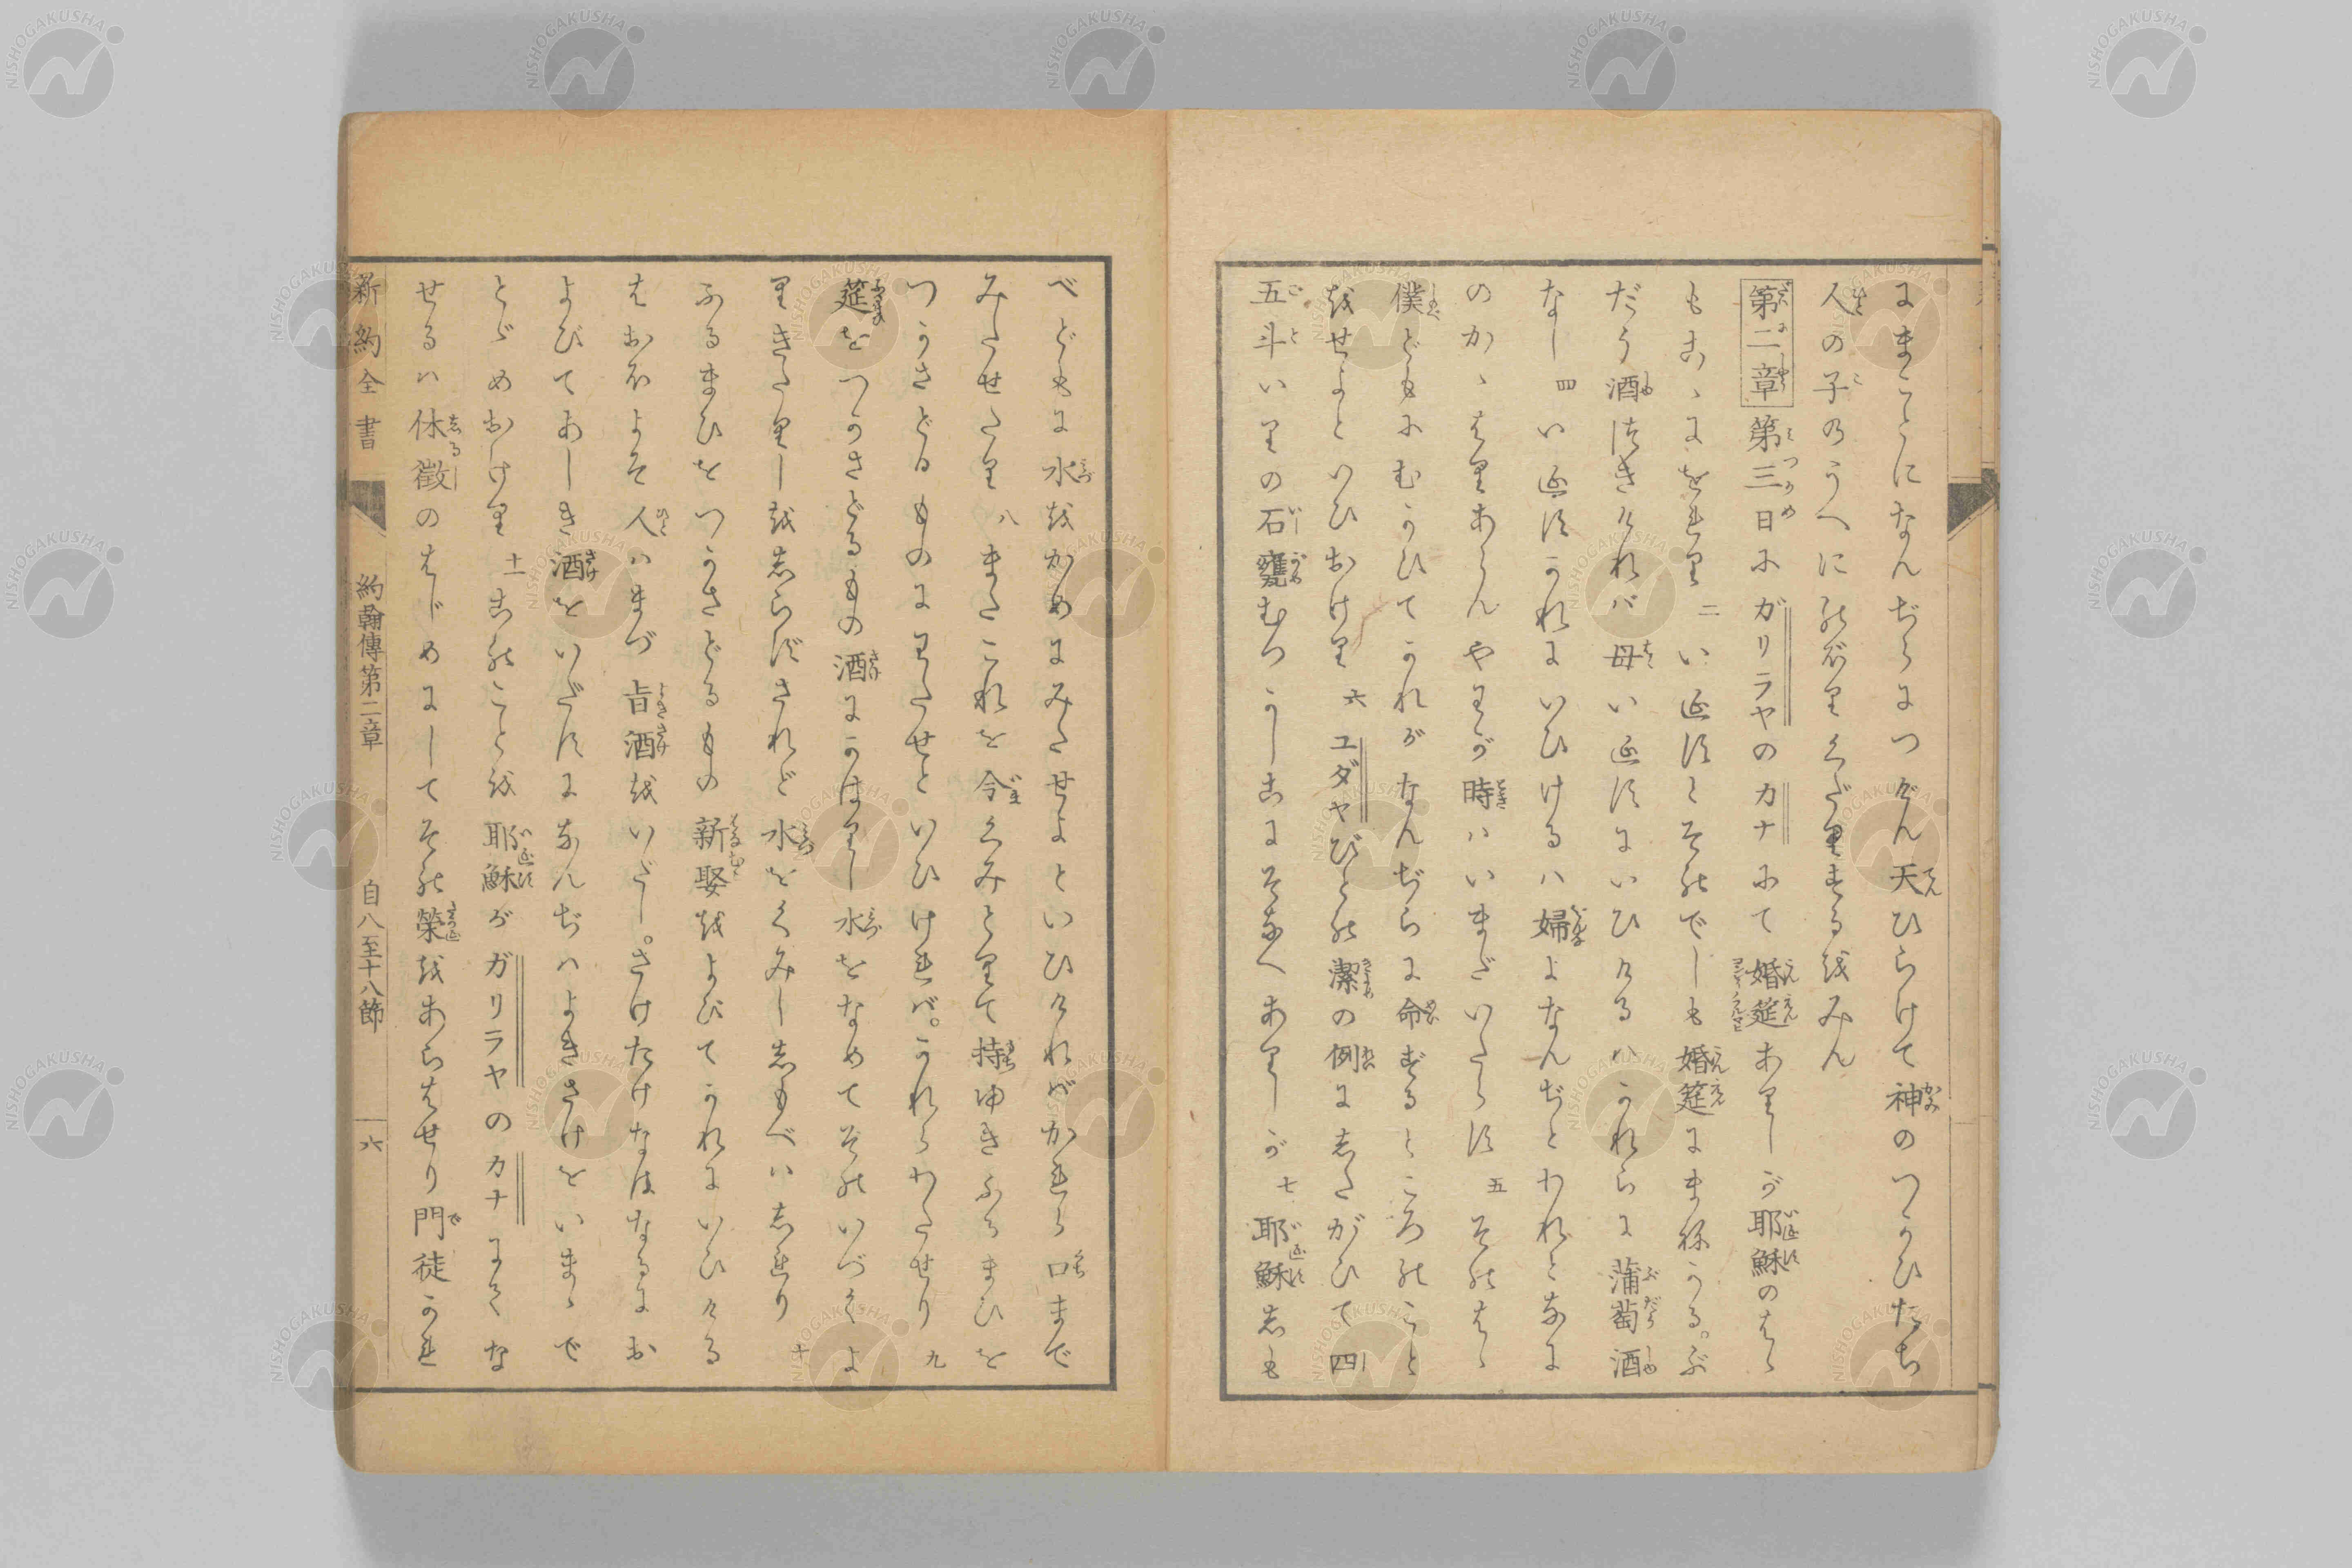 にまことになんぢらにつげん天ひらけて神のつかひたち
人の子のうへにのぼりくだりするをみん
第二章 第三日にガリラヤのカナにて婚筵ありしが耶穌のはゝ
もこゝにをれり 二 いゑすとそのでしも婚筵にまねかる。ぶ
だう酒つきければ母いゑすにいひけるハかれらに蒲萄酒
なし 四 いゑすかれにいひけるハ婦よなんぢとわれとなに
のかゝはりあらんやわが時ハいまだいたらず 五 そのはゝ
僕どもにむかひてかれがなんぢらに命ずるところのこと
をせよといひおけり 六 ユダヤびとの潔の例にしたがひて四
五斗いりの石甕むつかしこにそなへありしが 七 耶穌しも
べどもに水をかめにみたせよといひければかれら口まで
みたせたり 八 またこれを今くみとりて持ゆきふるまひを
つかさどるものにわたせといひければ。かれらわたせり 九
筵をつかさどるもの酒にかはりし水をなめてそのいづくよ
りきたりしをしらずされど水をくみししもべハしれり 十
ふるまひをつかさどるもの新娶をよびてかれにいひける
はおほよそ人ハまづ旨酒をいだし。さけたけなはなるにお
よびてあしき酒をいだすになんぢハよきさけをいまゝで
とゞめおけり 十一 このことを耶穌がガリラヤのカナにてな
せるハ休徵のはじめにしてその榮をあらはせり門徒かれ
新約全書 約翰傳第二章 自八至十八節 六